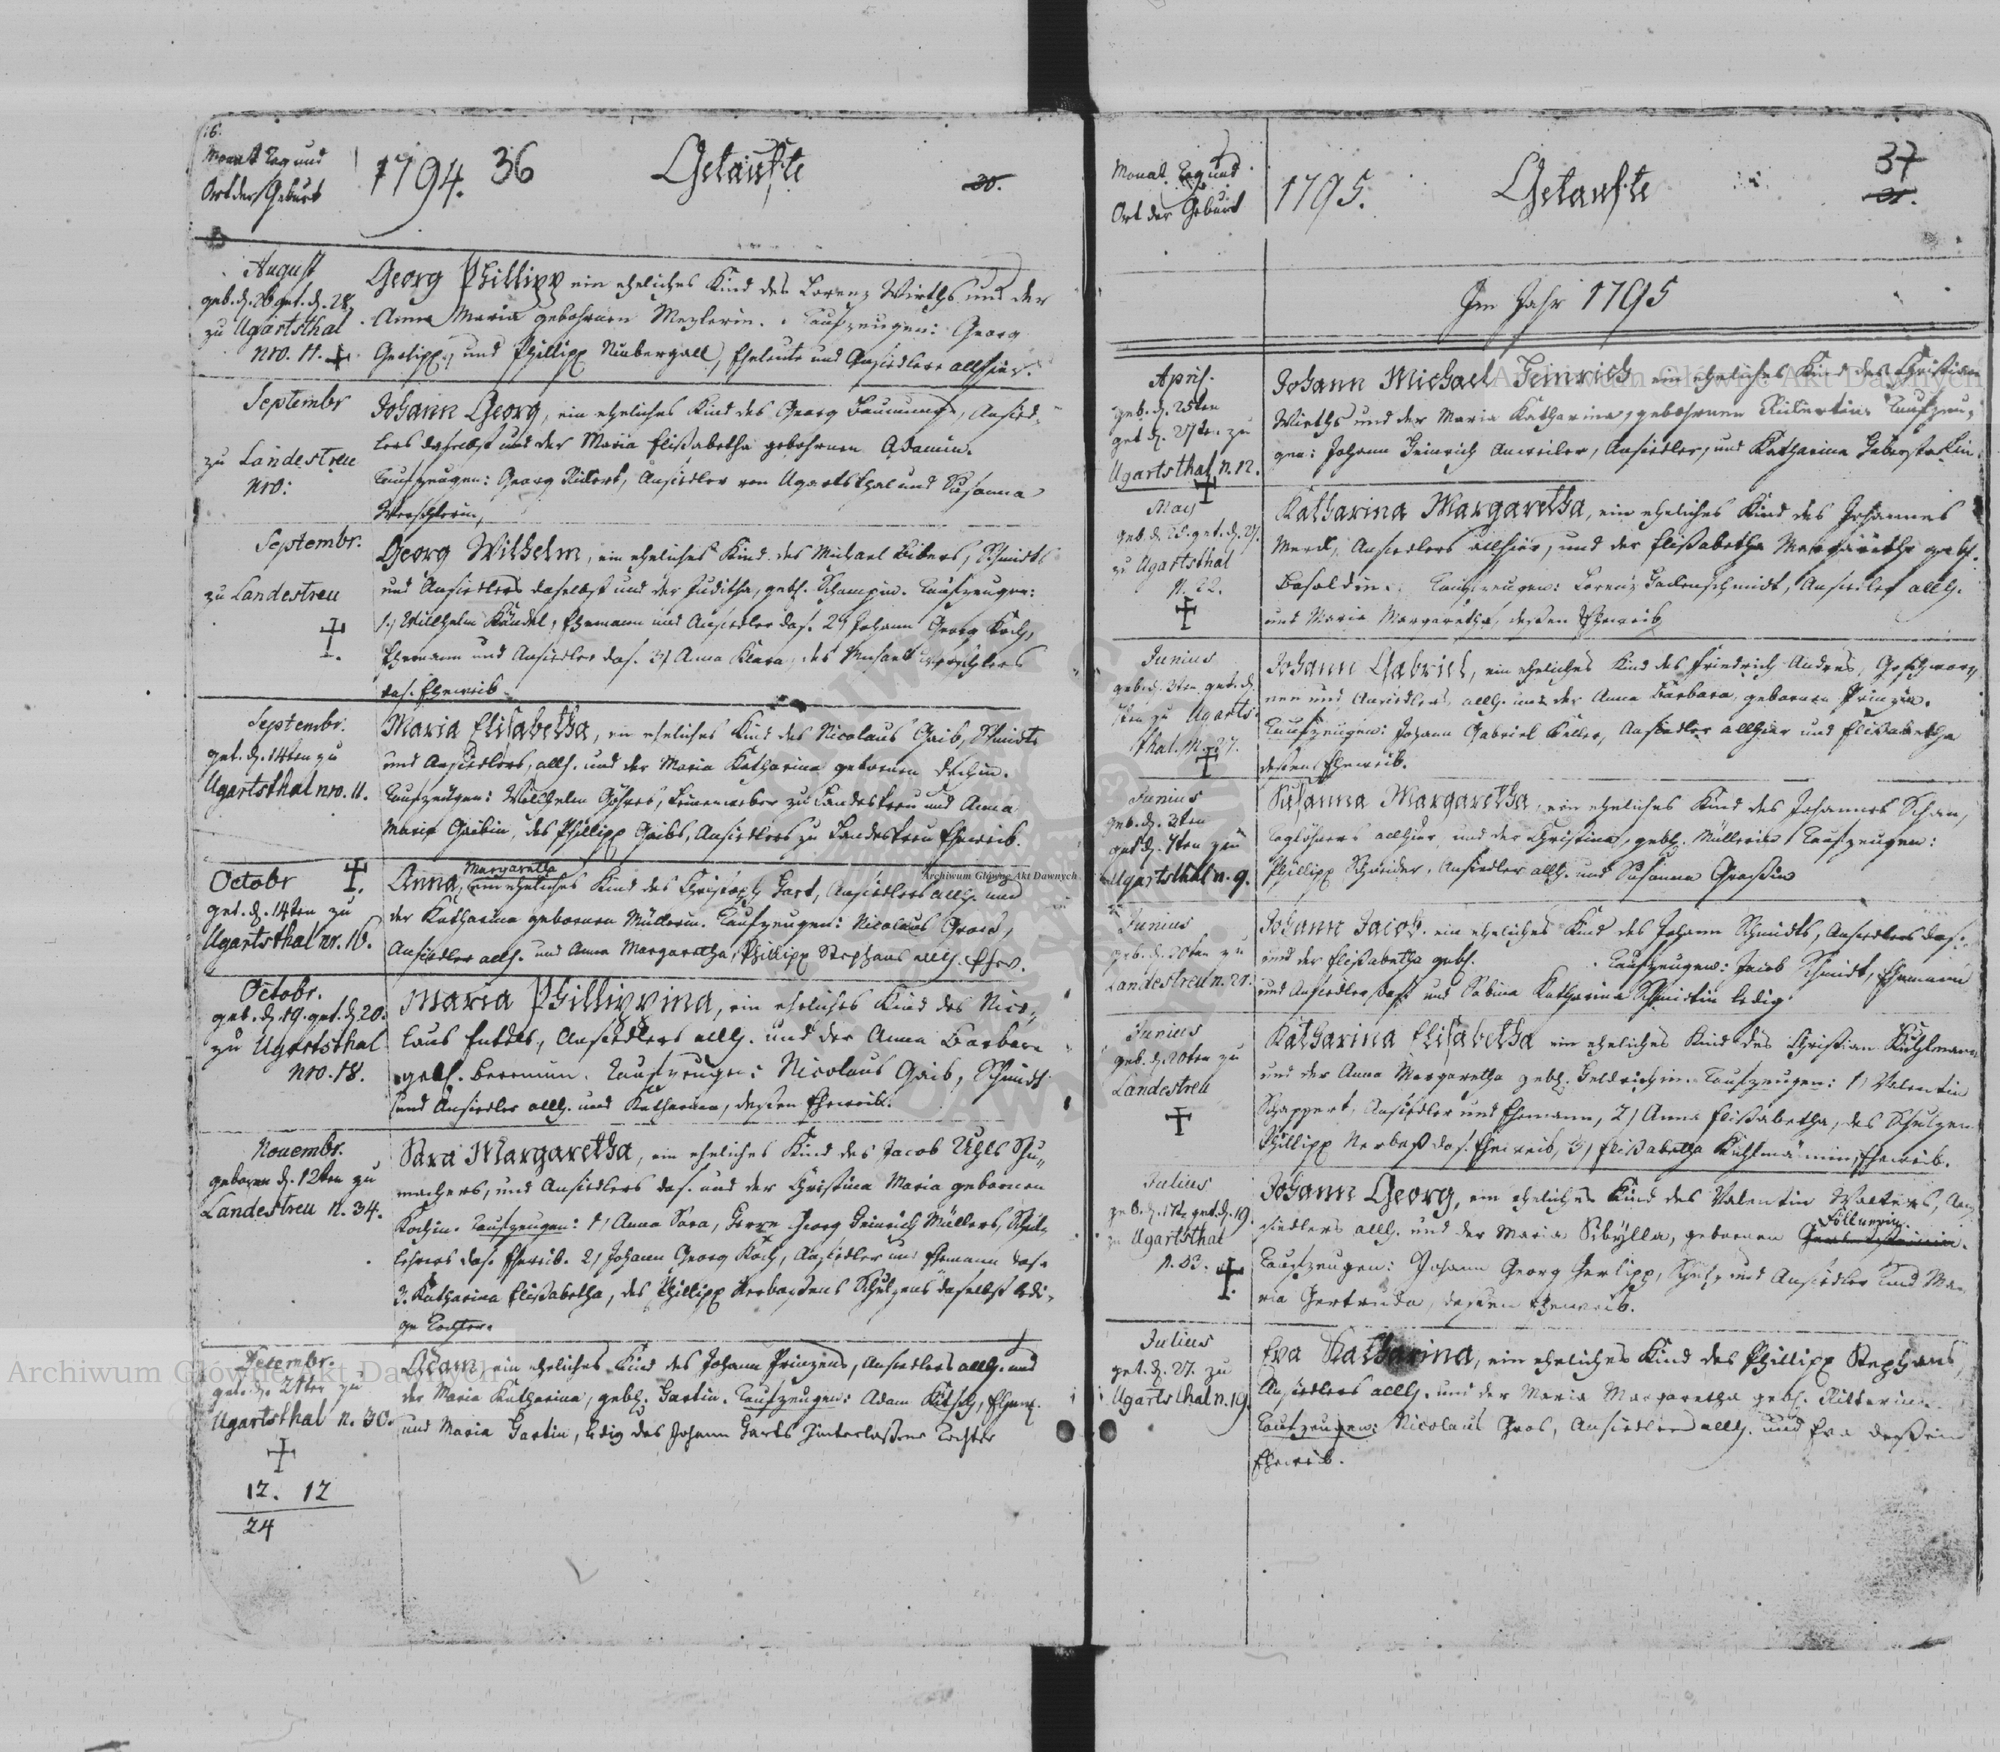 16.
Monat Tag und
Ort der Geburt
1794. 36 Getaufte
30.
August
geb. d. 26 get. d. 28.
zu Ugartsthal
nro. 11.
Georg Phillipp ein eheliches Kind des Lorenz Wirths und der
Anna Maria gebohrnen Mezlerin. Taufzeugen: Georg
Gerlipp, und Phillipp Niebergall, Eheleute und Ansiedlere allhier.
Septembr
zu Landestreu
nro:
Johann Georg, ein eheliches Kind des Georg Baumung, Ansied-
lers daselbst und der Maria Elisabetha gebohrnen Adamin.
Taufzeugen: Georg Rükert, Ansiedler von Ugartsthal und Susanna
Septembr.
zu Landestreu
Georg Wilhelm, ein eheliches Kind des Michael Bibers, Schmidts
und Ansiedlers daselbst und der Juditha, gebh. Schampin. Taufzeugen:
1, Willhelm Kändel, Ehemann und Ansiedler das. 2, Johann Georg Koch,
Ehemann und Ansiedler das. 3, Anna Klara, des Michael
das. Eheweib.
Septembr.
get. d. 14ten zu
Ugartsthal nro. 11.
Maria Elisabetha, ein eheliches Kind des Nicolaus Gaib, Schmidts
und Ansiedlers, allh. und der Maria Katharina gebornen
Taufzeugen: Willhelm Göhres, Leineweber zu Landestreu und Anna
Maria Gaibin, des Phillipp Gaibs, Ansiedlers zu Landestreu Eheweib.
Octobr
get. d. 14ten zu
Ugartsthal nr. 10.
Margaretha
Anna, ein eheliches Kind des Christoph Hart, Ansiedlers allh. und
der Katharina gebornen Müllerin. Taufzeugen: Nicolaus Gros,
Ansiedler allh. und Anna Margaretha, Phillipp Stephans allh. Ehew.
Octobr.
geb. d. 19. get. d. 20.
zu Ugartsthal
nro. 18.
Maria Phillippina, ein eheliches Kind des Nico-
laus Ansiedlers allh. und der Anna Barbara
gebh. Taufzeugen: Nicolaus Gaib, Schmidt
und Ansiedler allh. und Katharina, dessen Eheweib.
Novembr.
geboren d. 12ten zu
Landestreu n. 34.
Sara Margaretha, ein eheliches Kind des Jacob Uhls Schu-
machers, und Ansiedlers das. und der Christina Maria gebornen
Kochin. Taufzeugen: 1, Anna Sara, Herrn Georg Heinrich Müllers, Schul-
lehrers das. Eheweib. 2, Johann Georg Koch, Ansiedler und Ehemann das.
3. Katharina Elisabetha, des Phillipp Nerbassens Schulzens daselbst ledi-
ge Tochter.
Decembr.
get. d. 21ten zu
Ugartsthal n. 30.
12. 12
24
Adam, ein eheliches Kind des Johann Prinzens, Ansiedlers allh. und
der Maria Katharina, gebh. Hartin. Taufzeugen: Adam Ehem.
und Maria Hartin, ledig des Johann Harts hinterlassene Tochter
Monat Tag und
Ort der Geburt
1795. Getaufte
37
31.
Im Jahr 1795
April.
geb. d. 25ten
get. d. 27te. zu
Ugartsthal n. 12.
Johann Michael Heinrich ein eheliches Kind des Christian
Wirths und der Maria Katharina, gebohrnen Taufzeu-
gen: Johann Heinrich Anweiler, Ansiedler, und Katharina
May
geb. d. get. d. 27.
zu Ugartsthal
N. 22.
Katharina Margaretha, ein eheliches Kind des Johannes
Merck, Ansiedlers allhier, und der Elisabetha Margaretha gebh.
Basoldin. Taufzeugen: Lorenz Ansiedler allh.
und Maria Margaretha, dessen Eheweib
Junius
geb. d. 3ten get. d.
5ten zu Ugarts-
thal. N. 27.
Johann Gabriel, ein eheliches Kind des Friedrich Andres, Geschwor-
nen und Ansiedlers allh. und der Anna Barbara gebornen Prinzin.
Taufzeugen: Johann Gabriel Keller, Ansiedler allhier und Elisabetha
dessen Eheweib.
Junius
geb. d. 3ten
get. d. 4ten zu
Ugartsthal n. 9.
Susanna Margaretha, ein eheliches Kind des Johannes Schan,
Taglöhners allhier und der Christina, gebh. Müllerin Taufzeugen:
Phillipp Schneider, Ansiedler allh. und Susanna Großin
Junius
geb. d. 20ten zu
Landestreu n. 21.
Johann Jacob. ein eheliches Kind des Johann Schmidts, Ansiedlers das.
und der Elisabetha gebh. Taufzeugen: Jacob Schmidt, Ehemann
und Ansiedler das. und Sabina Katharina Schmidtin ledig.
Junius
geb. d. 20ten zu
Landestreu
Katharina Elisabetha ein eheliches Kind des Christian Kuhlmanns
und der Anna Margaretha gebh. Heldrichin. Taufzeugen: 1, Valentin
Schappert, Ansiedler und Ehemann, 2, Anna Elisabetha, des Schulzens
Phillipp Nerbaß das. Eheweib, 3, Elisabetha Kuhlmännin, Eheweib.
Julius
geb. d. 17te get. d. 19.
zu Ugartsthal
n. 33.
Johann Georg, ein eheliches Kind des Valentin Walters, An-
siedlers allh. und der Maria Sibylla, gebornen
Taufzeugen: Johann Georg Gerlipp, Schulz und Ansiedler und Ma-
ria Gertruda, dessen Eheweib.
Julius
get. d. 27. zu
Ugartsthal n. 19.
Eva Katharina, ein eheliches Kind des Phillipp Stephans,
Ansiedlers allh. und der Maria Margaretha gebh. Ritterin.
Taufzeugen: Nicolaus Gros, Ansiedler allh. und Eva dessen
Eheweib.
Archiwum Główne Akt Dawnych
Archiwum Główne Akt Dawnych
Archiwum Główne Akt Dawnych